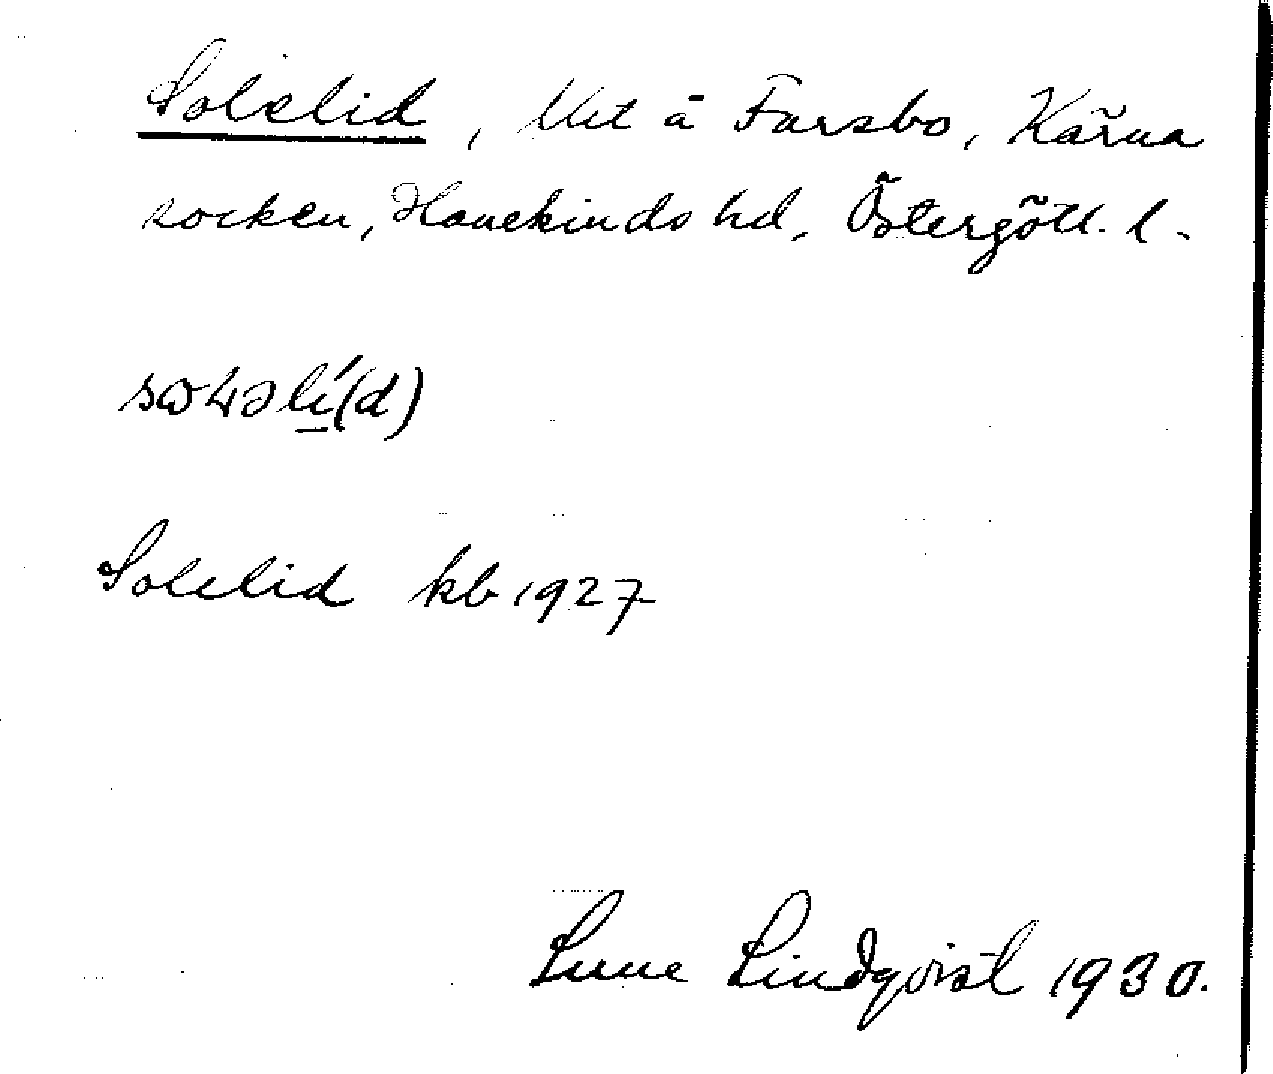 Solelid, Utet å Farsbo, Kärna
socken, Hanekinds hd, Östergötl. l.
Solelid kb 1927
Sune Lindqvist 1930.